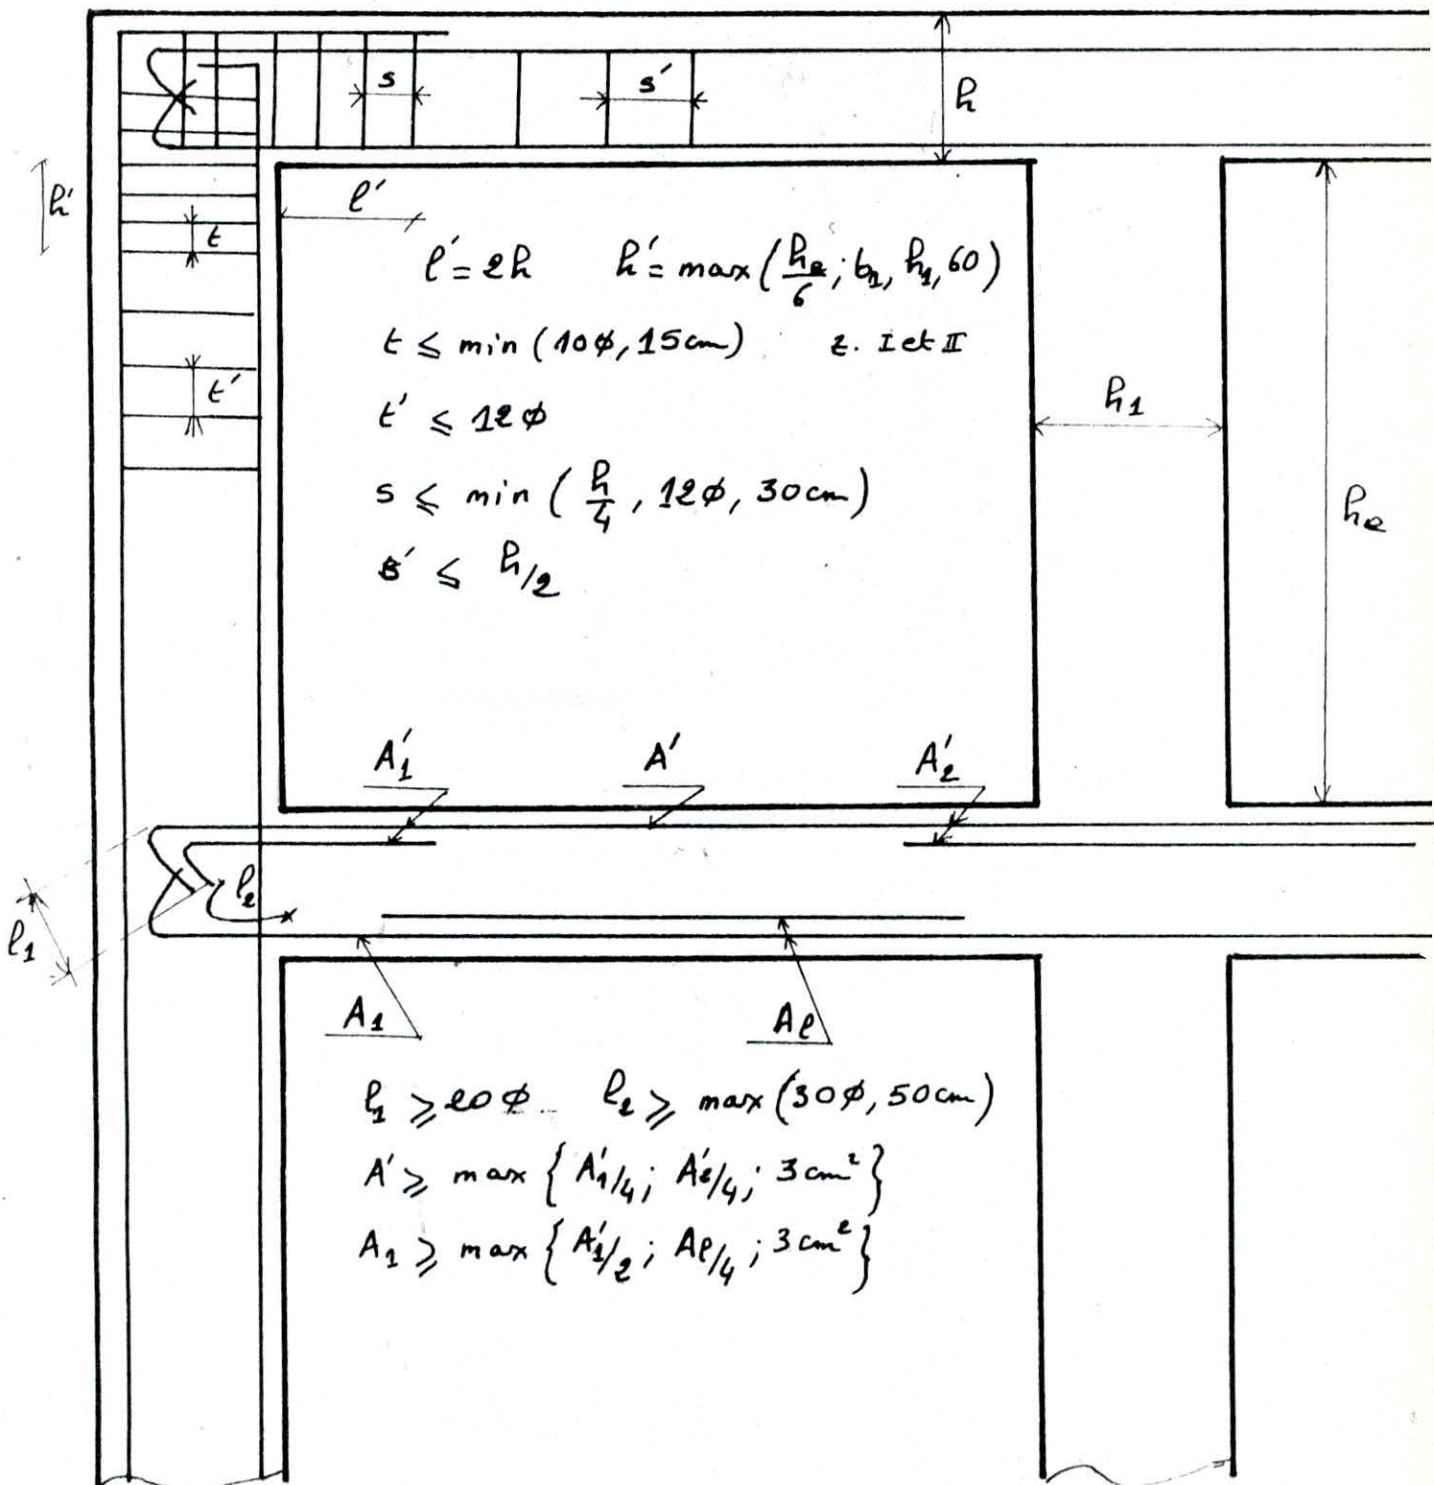 s s′ h
h′ l′
t
l′ = 2h h′ = max(he/6; b1, h1, 60)
t ≤ min (10ϕ, 15cm) z. I et II
t′
h1
t′ ≤ 12ϕ
s ≤ min (h/4, 12ϕ, 30cm)
he
s′ ≤ h/2
A′1 A′ A′2
l2
l1
A1 Al
l1 ≥ 20ϕ l2 ≥ max (30ϕ, 50cm)
A′ ≥ max { A′1/4; A′2/4; 3cm² }
A1 ≥ max { A′1/2; Al/4; 3cm² }